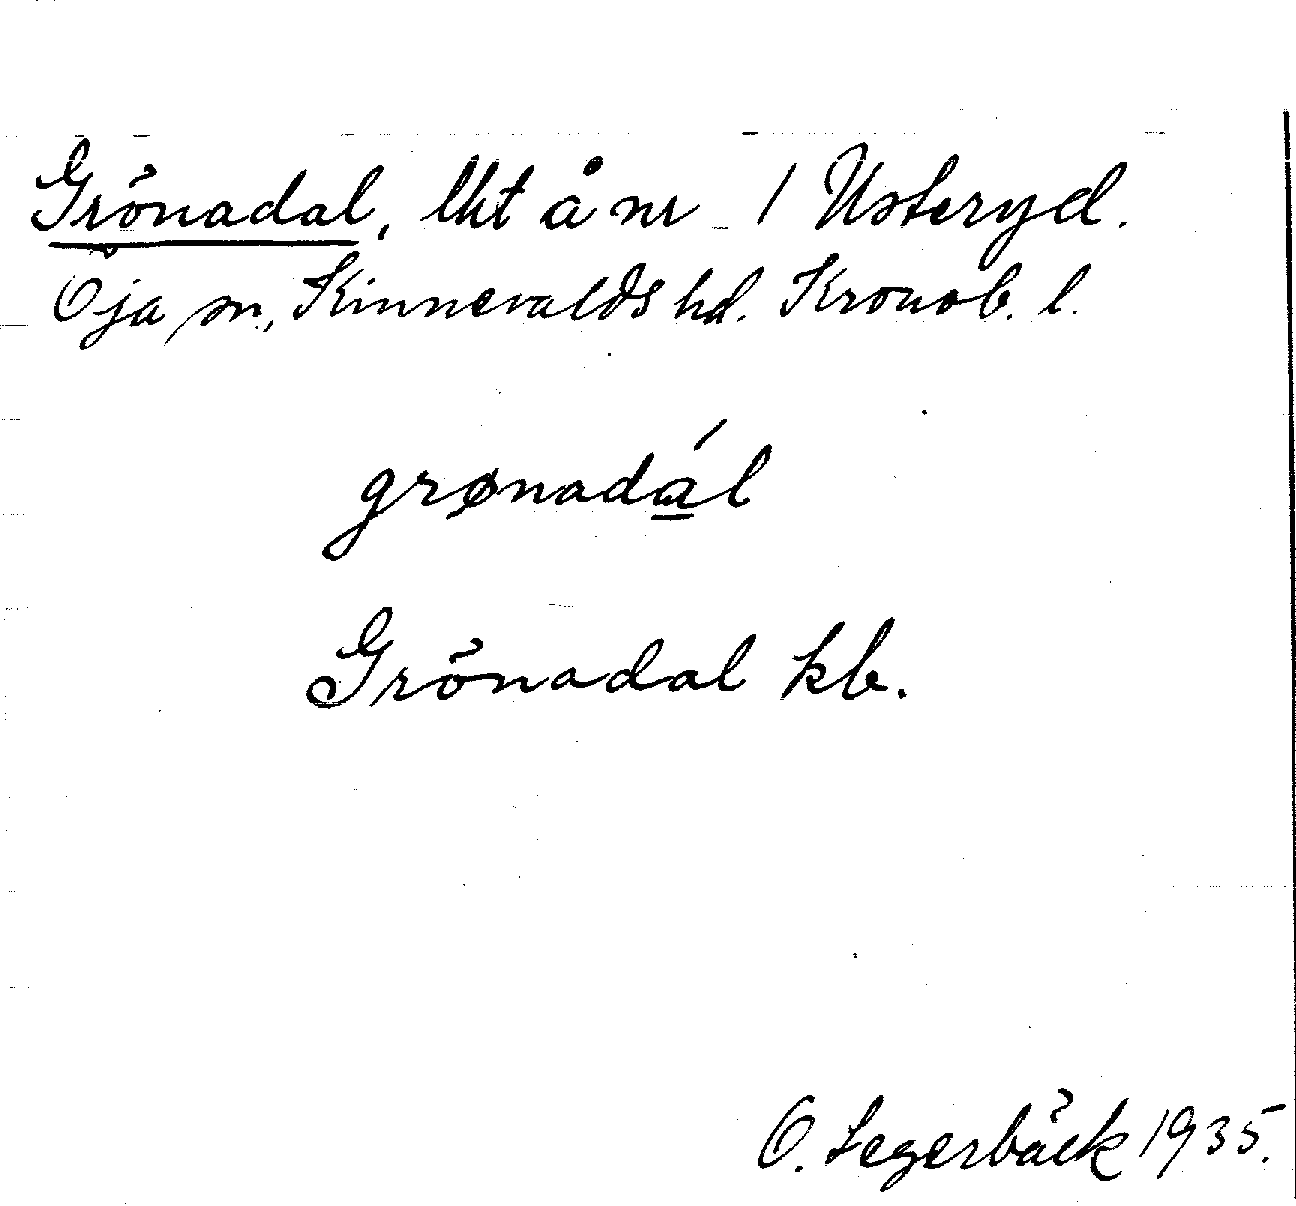 Grönadal, lht å nr 1 Usteryd.
Öja sn, Kinnevalds hd. Kronob. l.
grønadál
Grönadal kb.
O. Segerbäck 1935.